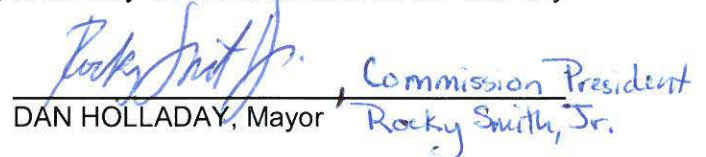 Rocky Smith Jr. , Commission President
DAN HOLLADAY, Mayor Rocky Smith, Jr.